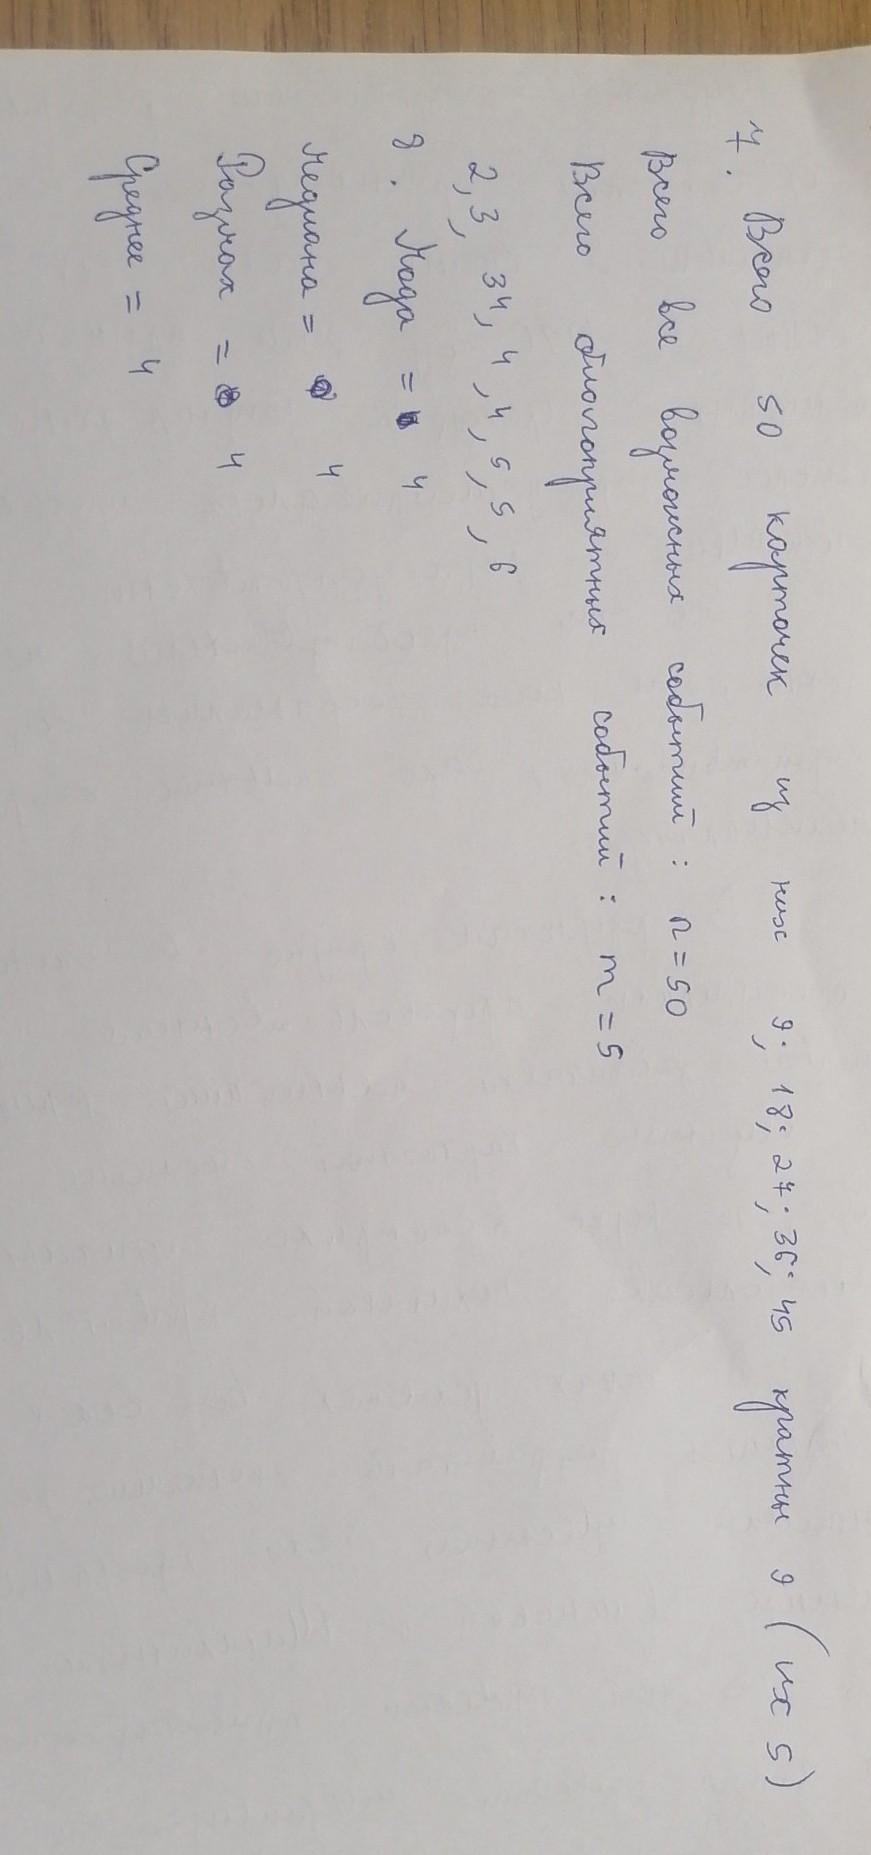 7. Всего 50 карточек из них 9; 18; 27; 36; 45 кратны 9 (их 5)
Всего все возможных событий: n = 50
Всего благоприятных событий: m = 5
2, 3, 34, 4, 4, 5, 5, 6
8. Мода = 4
Медиана = 4
Размах = 4
Среднее = 4